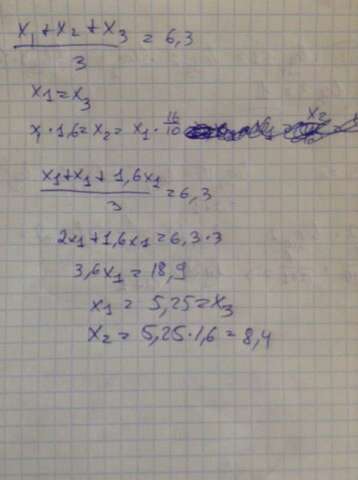 x₁ + x₂ + x₃ / 3 = 6,3
x₁ = x₃
x₁ · 1,6 = x₂ = x₁ · 16/10
x₁ + x₁ + 1,6x₁ / 3 = 6,3
2x₁ + 1,6x₁ = 6,3 · 3
3,6x₁ = 18,9
x₁ = 5,25 = x₃
x₂ = 5,25 · 1,6 = 8,4